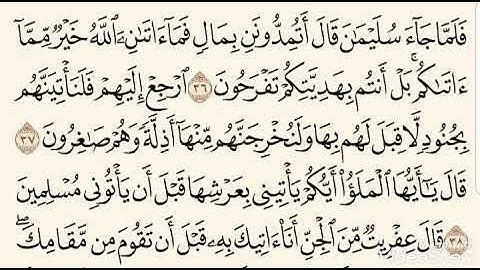 فَلَمَّا جَآءَ سُلَيْمَٰنَ قَالَ أَتُمِدُّونَنِ بِمَالٖ فَمَآ ءَاتَىٰنِۦَ ٱللَّهُ خَيۡرٞ مِّمَّآ
ءَاتَىٰكُمۚ بَلۡ أَنتُم بِهَدِيَّتِكُمۡ تَفۡرَحُونَ ٣٦ ٱرۡجِعۡ إِلَيۡهِمۡ فَلَنَأۡتِيَنَّهُم
بِجُنُودٖ لَّا قِبَلَ لَهُم بِهَا وَلَنُخۡرِجَنَّهُم مِّنۡهَآ أَذِلَّةٗ وَهُمۡ صَٰغِرُونَ ٣٧
قَالَ يَٰٓأَيُّهَا ٱلۡمَلَؤُاْ أَيُّكُمۡ يَأۡتِينِي بِعَرۡشِهَا قَبۡلَ أَن يَأۡتُونِي مُسۡلِمِينَ
٣٨ قَالَ عِفۡرِيتٞ مِّنَ ٱلۡجِنِّ أَنَا۠ ءَاتِيكَ بِهِۦ قَبۡلَ أَن تَقُومَ مِن مَّقَامِكَۖ